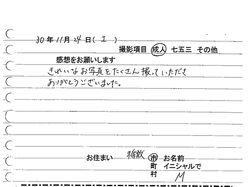 30年11月24日(土)
撮影項目 成人 七五三 その他
感想をお願いします
きれいなお写真をたくさん撮っていただき
ありがとうございました。
お住まい 市 お名前
町 イニシャルで
村 M